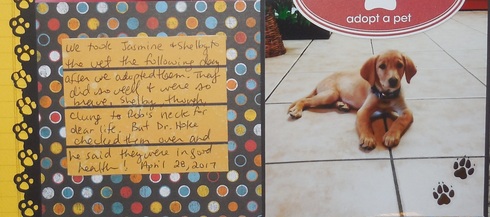 We took Jasmine & Shelby to
the vet the following day
after we adopted them. They
did so well & were so
brave. Shelby, though,
clung to Rob's neck for
dear life. But Dr. Hoke
checked them over and
he said they were in good
health! April 28, 2017
adopt a pet